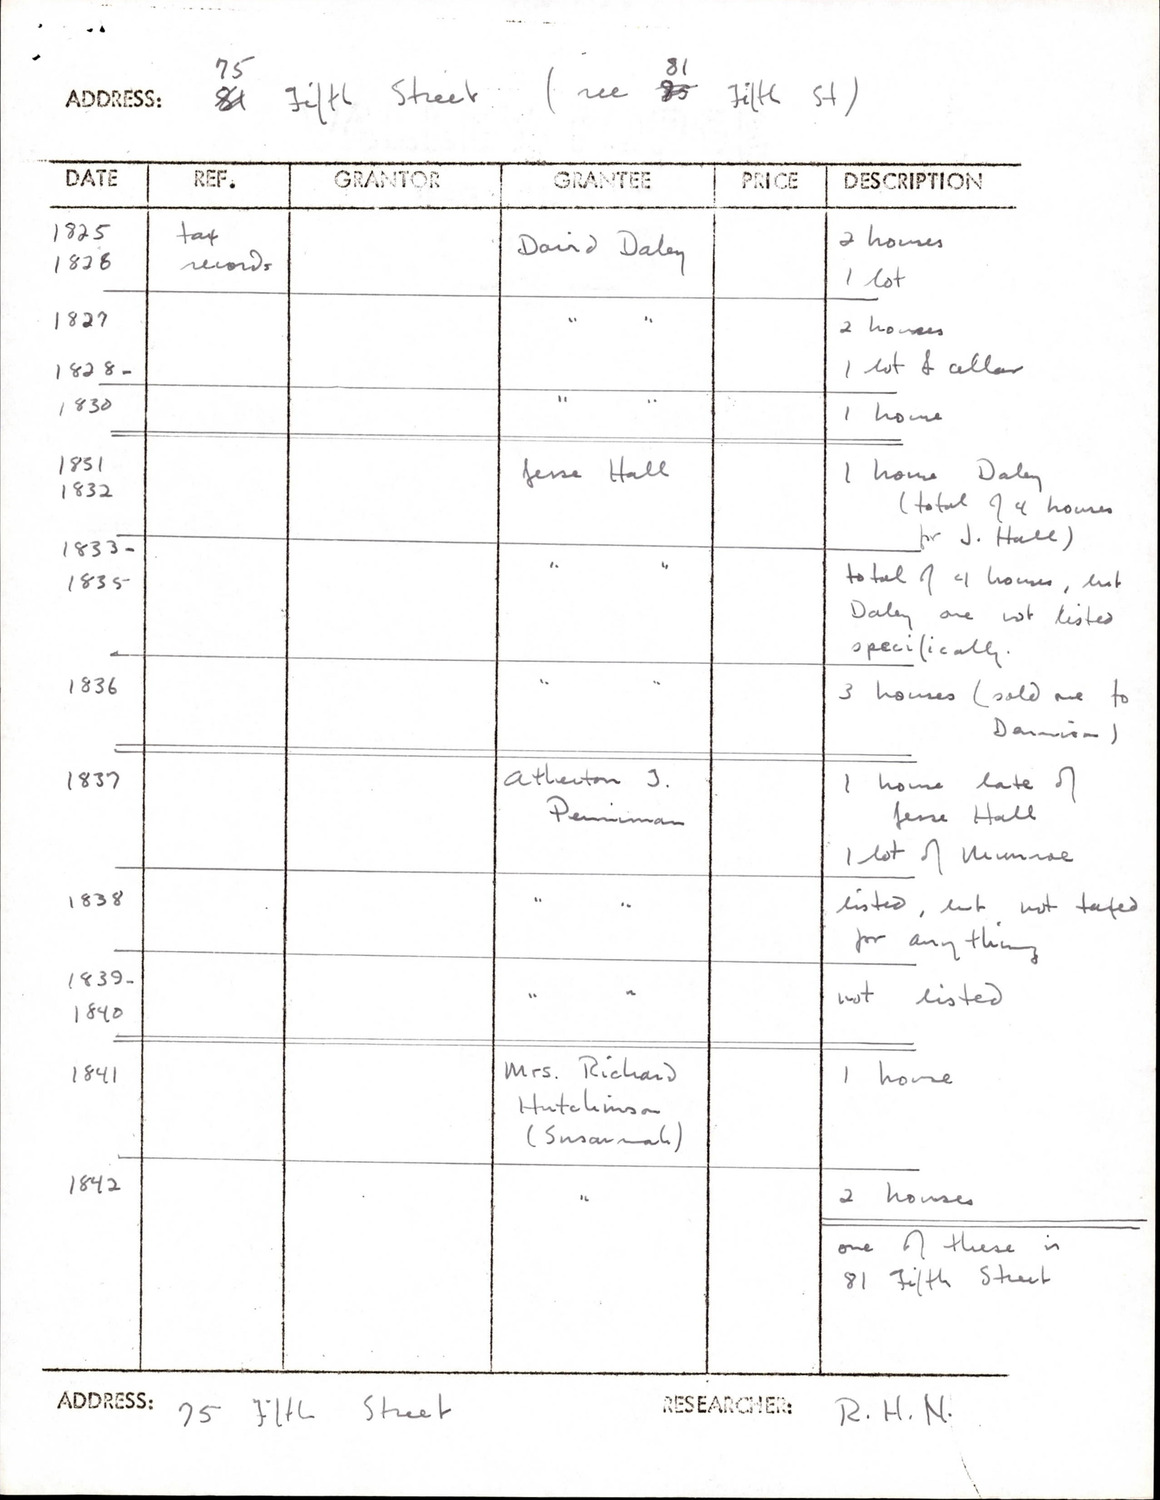 75
ADDRESS: 81 Fifth Street (see 85 81 Fifth St)
DATE REF. GRANTOR GRANTEE PRICE DESCRIPTION
1825 tax David Daley 2 houses
1826 records 1 lot
1827 " " 2 houses
1828- 1 lot & cellar
1830 " " 1 house
1831 Jesse Hall 1 house Daley
1832 (total of 4 houses
for J. Hall)
1833-
1835 " " total of 4 houses, but
Daley are not listed
specifically.
1836 " " 3 houses (sold one to
Dennison)
1837 Atherton J. 1 house late of
Penniman Jesse Hall
1 lot of Munroe
1838 " " listed, but not taxed
for anything
1839-
1840 " " not listed
1841 Mrs. Richard 1 house
Hutchinson
(Susannah)
1842 " 2 houses
one of these is
81 Fifth Street
ADDRESS: 75 Fifth Street RESEARCHER: R.H.N.